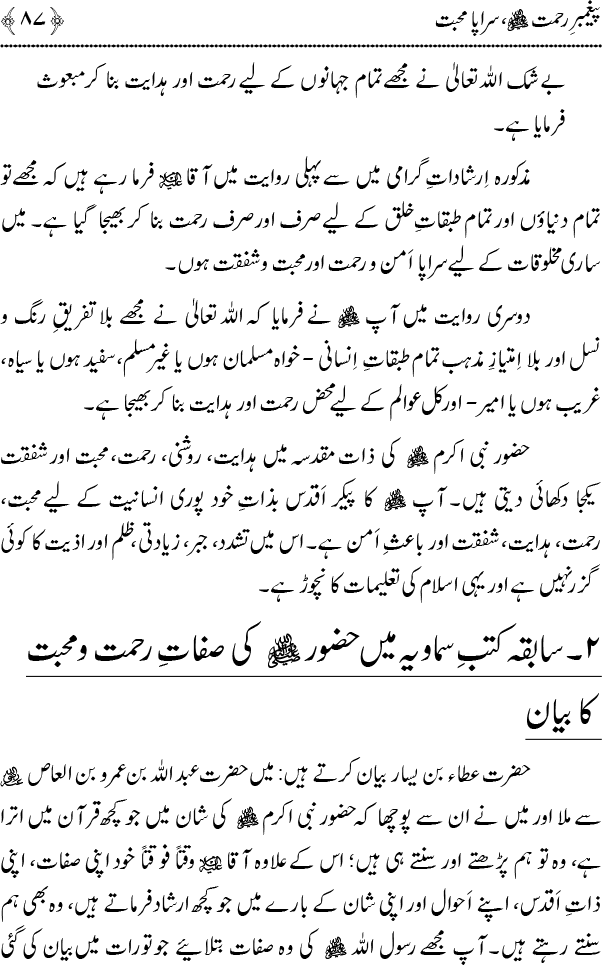 پیغمبرِ رحمت ﷺ، سراپا محبت ﴿۸۷﴾
بے شک اللہ تعالیٰ نے مجھے تمام جہانوں کے لیے رحمت اور ہدایت بنا کر مبعوث
فرمایا ہے۔
مذکورہ اِرشاداتِ گرامی میں سے پہلی روایت میں آقا ﷺ فرما رہے ہیں کہ مجھے تو
تمام دنیاؤں اور تمام طبقاتِ خلق کے لیے صرف اور صرف رحمت بنا کر بھیجا گیا ہے۔ میں
ساری مخلوقات کے لیے سراپا اَمن و رحمت اور محبت و شفقت ہوں۔
دوسری روایت میں آپ ﷺ نے فرمایا کہ اللہ تعالیٰ نے مجھے بلا تفریقِ رنگ و
نسل اور بلا اِمتیازِ مذہب تمام طبقاتِ اِنسانی - خواہ مسلمان ہوں یا غیر مسلم، سفید ہوں یا سیاہ،
غریب ہوں یا امیر - اور کل عوالم کے لیے محض رحمت اور ہدایت بنا کر بھیجا ہے۔
حضور نبی اکرم ﷺ کی ذات مقدسہ میں ہدایت، روشنی، رحمت، محبت اور شفقت
یکجا دکھائی دیتی ہیں۔ آپ ﷺ کا پیکر اَقدس بذاتِ خود پوری انسانیت کے لیے محبت،
رحمت، ہدایت، شفقت اور باعثِ اَمن ہے۔ اس میں تشدد، جبر، زیادتی، ظلم اور اذیت کا کوئی
گزر نہیں ہے اور یہی اسلام کی تعلیمات کا نچوڑ ہے۔
۲۔ سابقہ کتبِ سماویہ میں حضور ﷺ کی صفاتِ رحمت و محبت
کا بیان
حضرت عطاء بن یسار بیان کرتے ہیں: میں حضرت عبد اللہ بن عمرو بن العاص ؓ
سے ملا اور میں نے ان سے پوچھا کہ حضور نبی اکرم ﷺ کی شان میں جو کچھ قرآن میں اترا
ہے، وہ تو ہم پڑھتے اور سنتے ہی ہیں؛ اس کے علاوہ آقا ﷺ وقتًا فوقتًا خود اپنی صفات، اپنی
ذاتِ اَقدس، اپنے اَحوال اور اپنی شان کے بارے میں جو کچھ ارشاد فرماتے ہیں، وہ بھی ہم
سنتے رہتے ہیں۔ آپ مجھے رسول اللہ ﷺ کی وہ صفات بتلائیے جو تورات میں بیان کی گئی